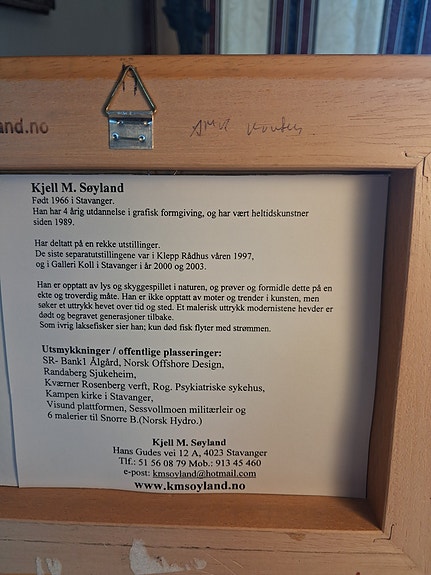 and.no
Kjell M. Søyland
Født 1966 i Stavanger.
Han har 4 årig utdannelse i grafisk formgiving, og har vært heltidskunstner
siden 1989.
Har deltatt på en rekke utstillinger.
De siste separatutstillingene var i Klepp Rådhus våren 1997,
og i Galleri Koll i Stavanger i år 2000 og 2003.
Han er opptatt av lys og skyggespillet i naturen, og prøver og formidle dette på en
ekte og troverdig måte. Han er ikke opptatt av moter og trender i kunsten, men
søker et uttrykk hevet over tid og sted. Et malerisk uttrykk modernistene hevder er
dødt og begravet generasjoner tilbake.
Som ivrig laksefisker sier han; kun død fisk flyter med strømmen.
Utsmykkninger / offentlige plasseringer:
SR- Bank1 Ålgård, Norsk Offshore Design,
Randaberg Sjukeheim,
Kværner Rosenberg verft, Rog. Psykiatriske sykehus,
Kampen kirke i Stavanger,
Visund plattformen, Sessvollmoen militærleir og
6 malerier til Snorre B.(Norsk Hydro.)
Kjell M. Søyland
Hans Gudes vei 12 A, 4023 Stavanger
Tlf.: 51 56 08 79 Mob.: 913 45 460
e-post: kmsoyland@hotmail.com
www.kmsoyland.no